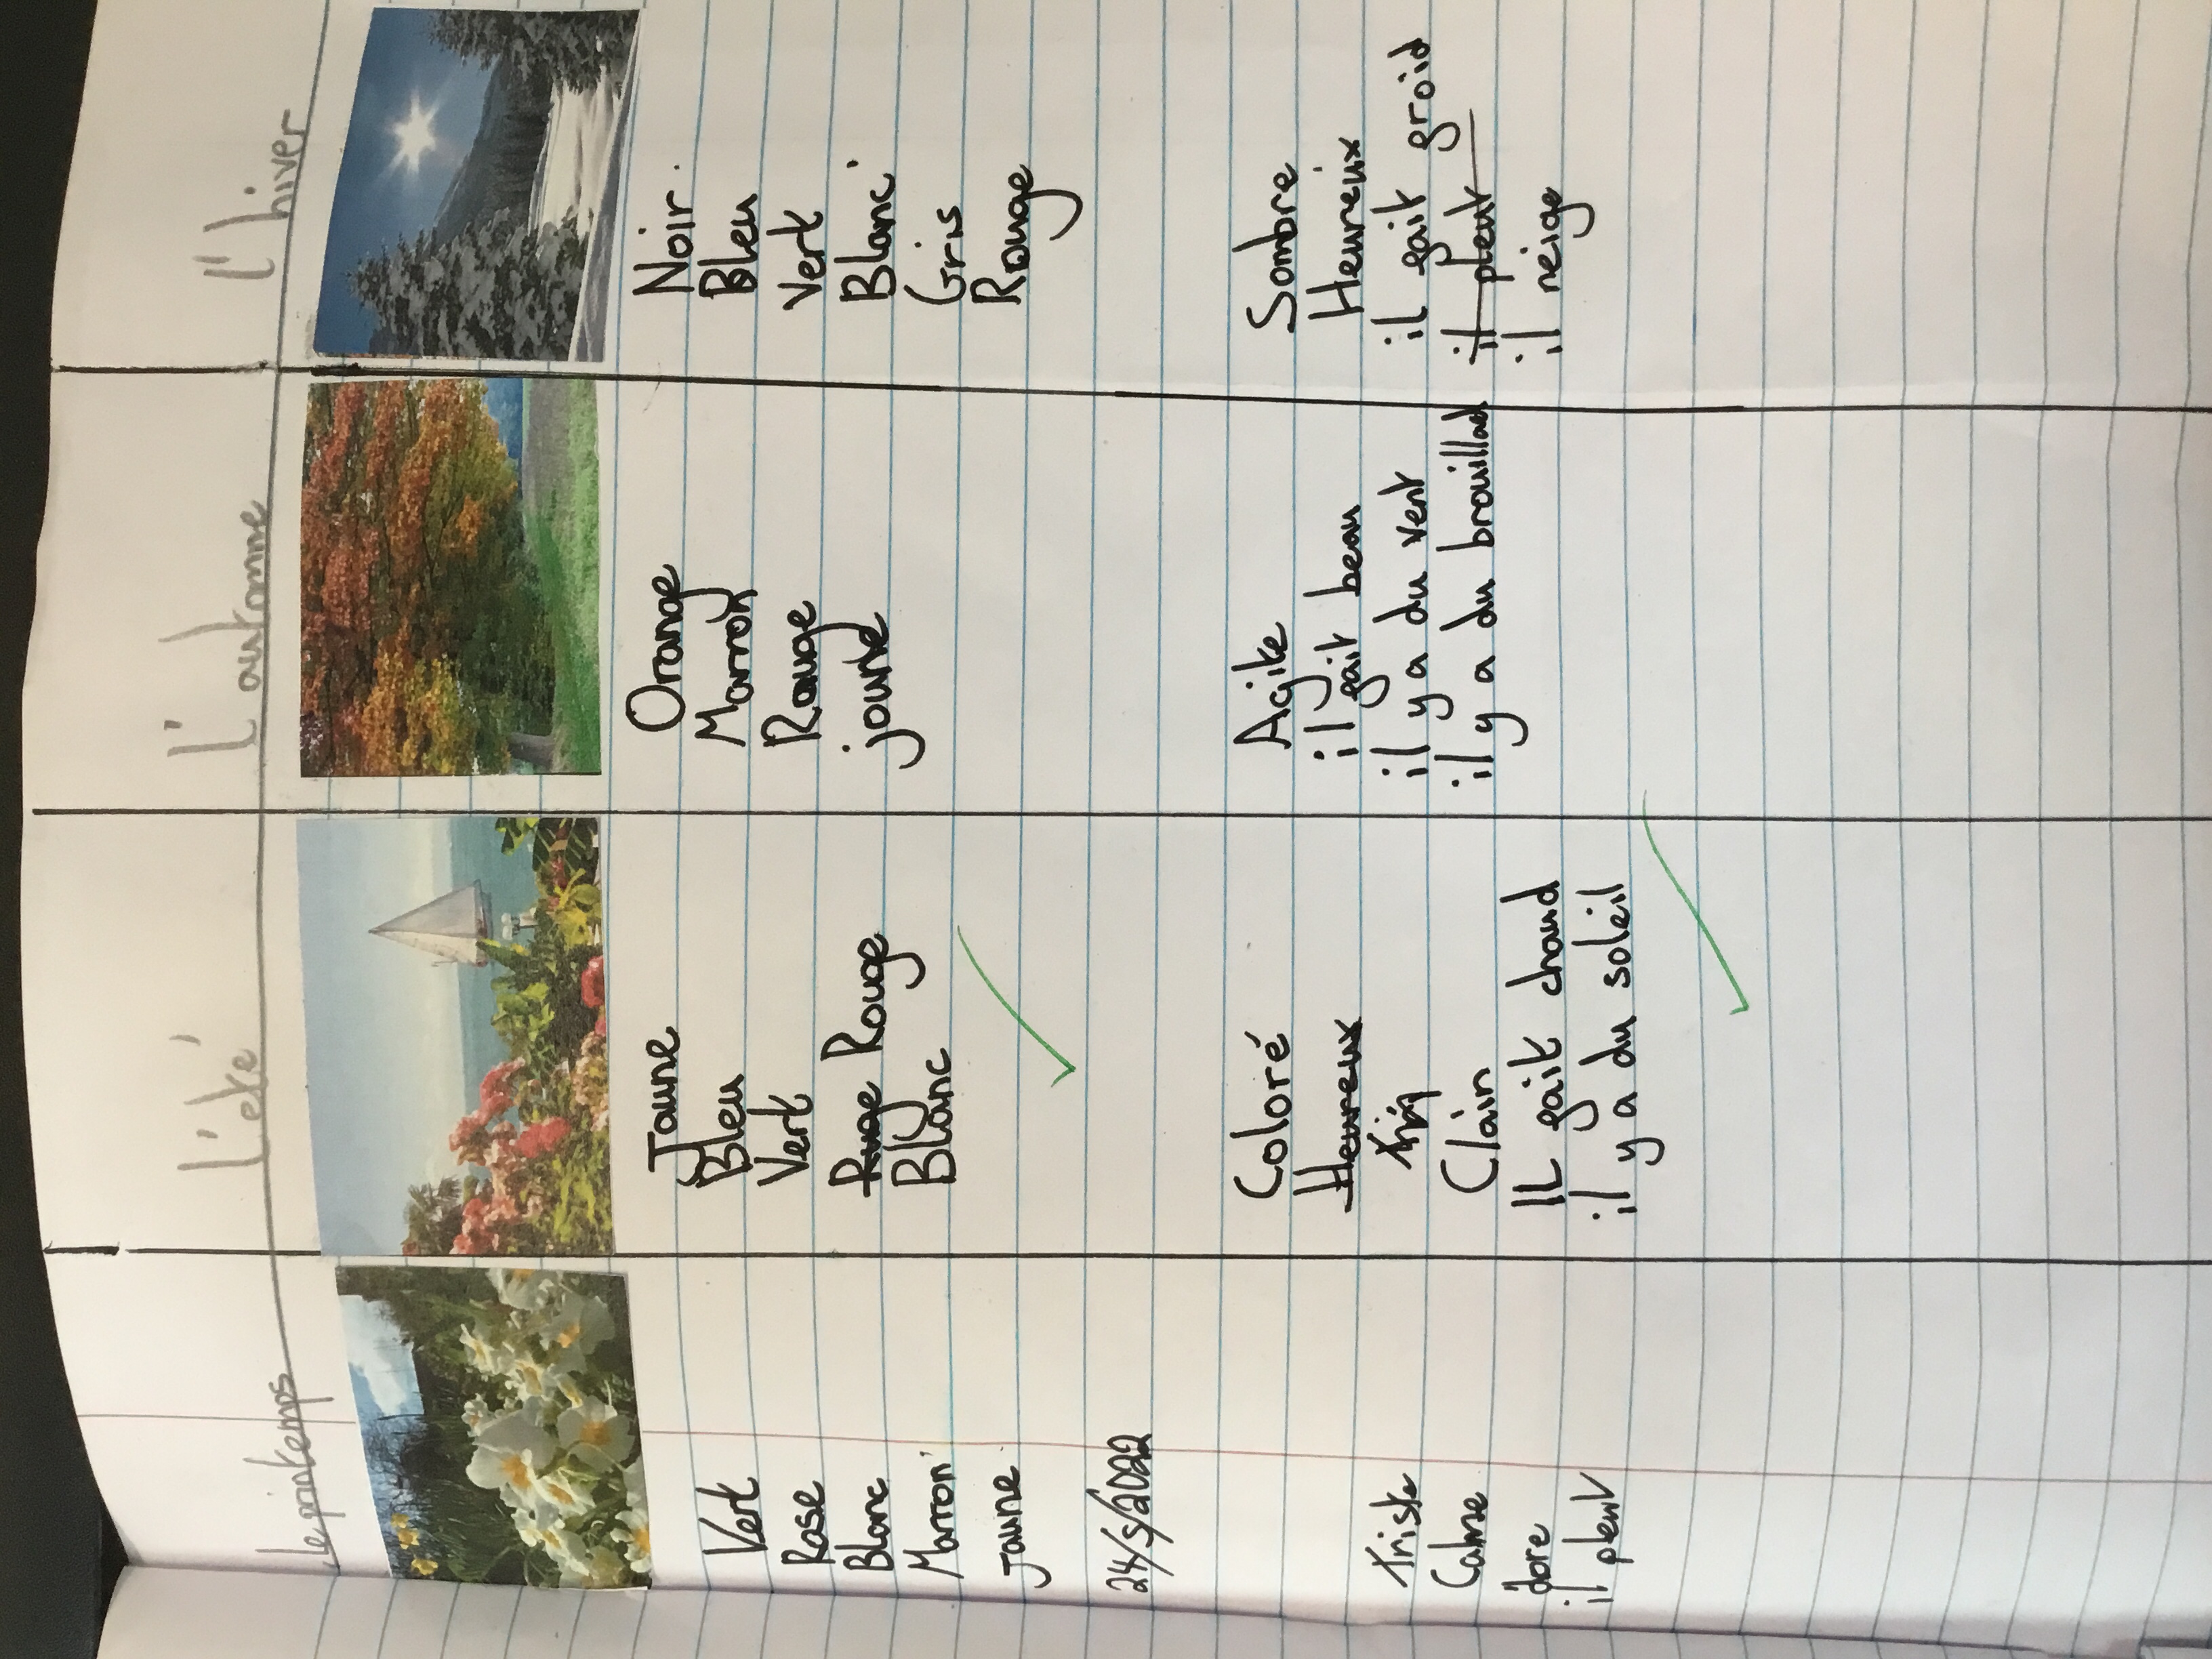 Le printemps
Vert
Rose
Blanc
Marron
Jaune
24/5/2022
triste
Calme
dore
il pleut
L'eté
Jaune
Bleu
Vert
Ruoge Rouge
Blanc
Coloré
Heureux
Clain
IL fait chaud
il y a du soleil
L'automne
Orange
Marron
Rouge
joune
Agite
il fait beau
il y a du vent
il y a du brouillad
L'hiver
Noir
Bleu
Vert
Blanc
Gris
Rouge
Sombre
Heureux
il fait froid
il pleut
il neige